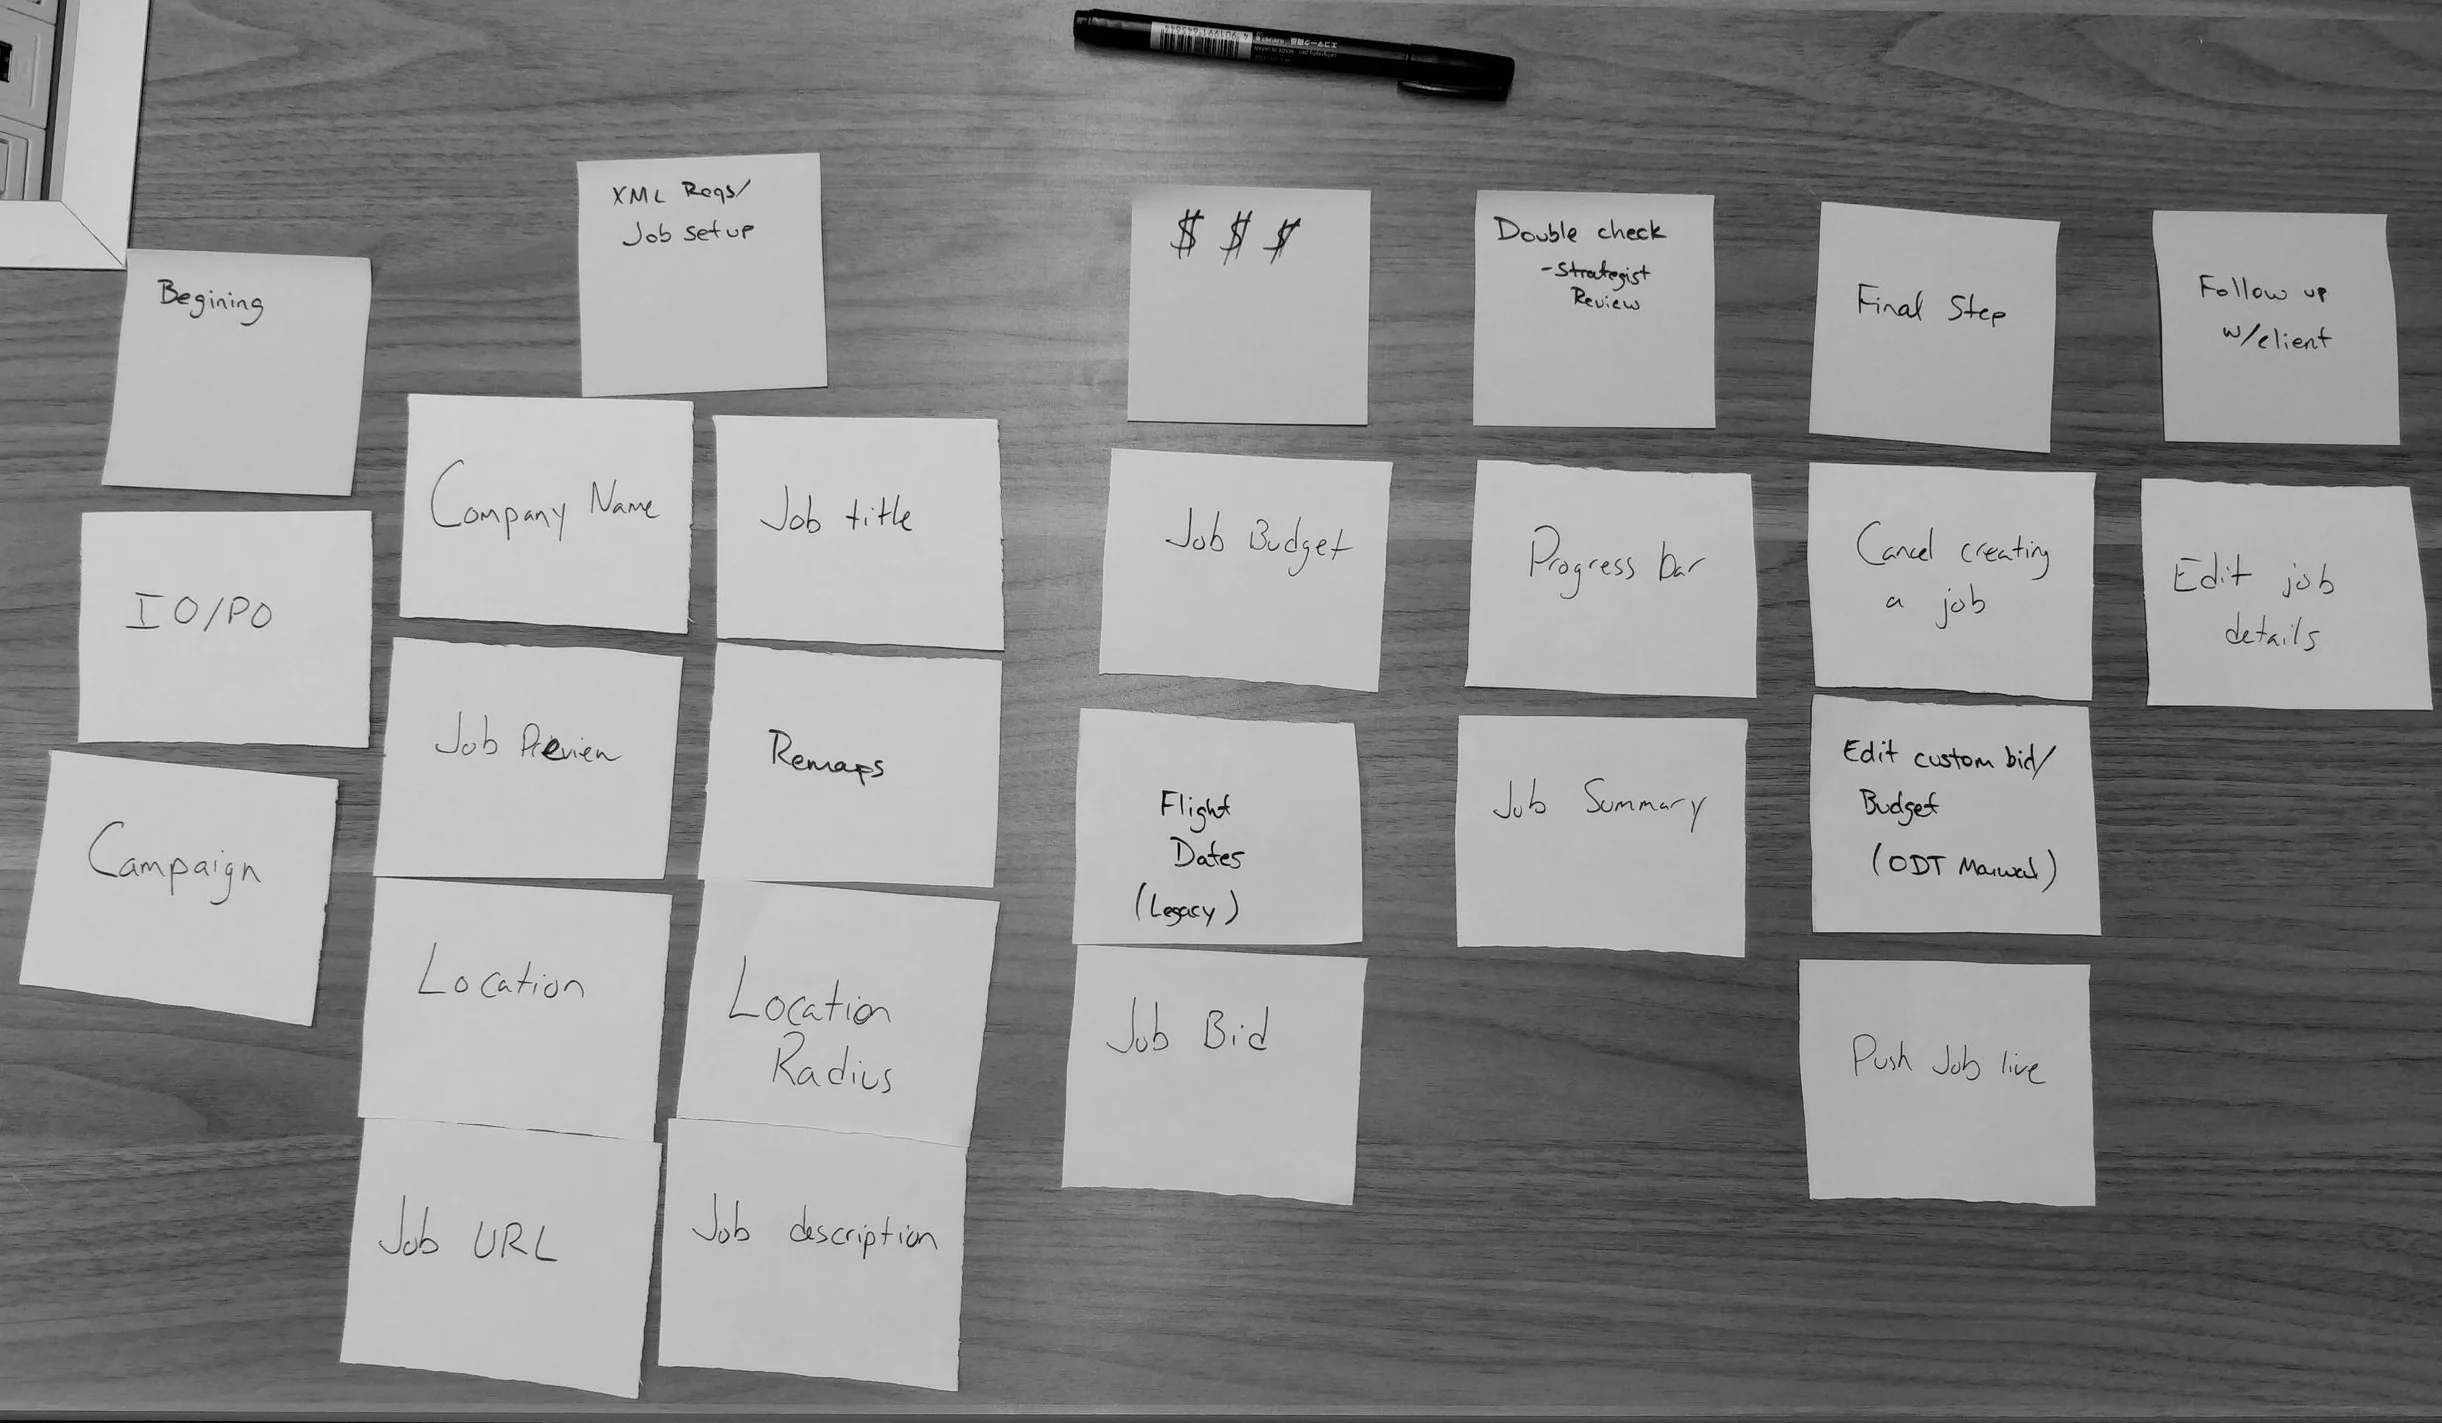 Begining
IO/PO
Campaign
XML Reqs/
Job setup
Company Name
Job title
Job Preview
Remaps
Location
Location
Radius
Job URL
Job description
$ $ $
Job Budget
Flight
Dates
(Legacy)
Job Bid
Double check
-Strategist
Review
Progress bar
Job Summary
Final Step
Cancel creating
a job
Edit custom bid/
Budget
(ODT Manual)
Push Job live
Follow up
w/client
Edit job
details